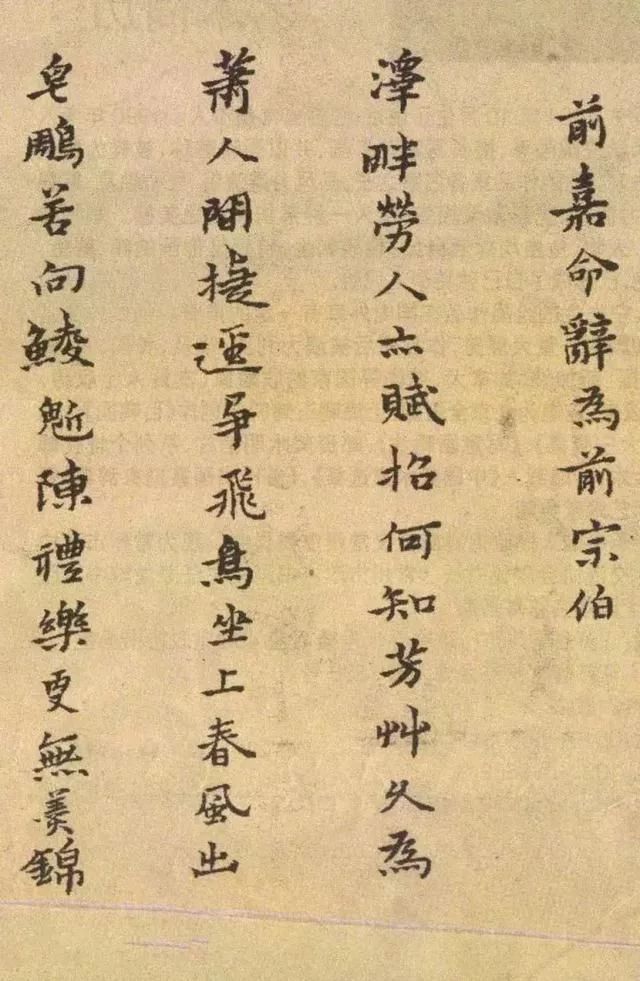 前嘉命辭為前宗伯
澤畔勞人亦賦招何知芳艸久為
蕭人間捷逕爭飛鳥坐上春風出
皂鵰若向陳禮樂更無羨錦